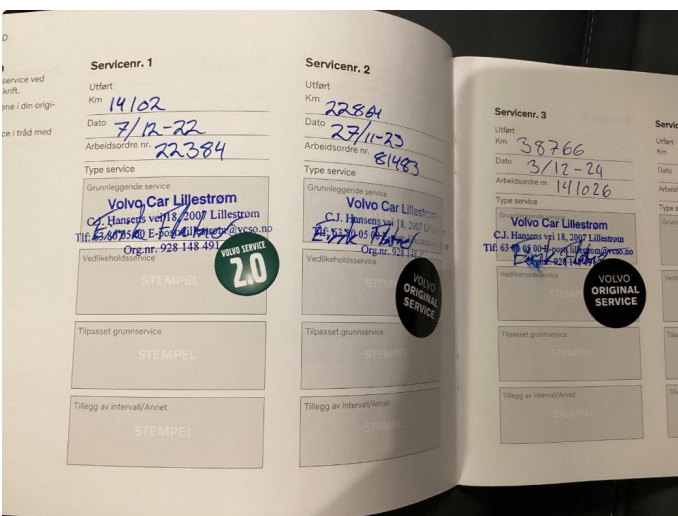 D
n
service ved
krift.
ene i din origi-
ce i tråd med
Servicenr. 1
Utført
Km 14102
Dato 7/12-22
Arbeidsordre nr. 22384
Type service
Grunnleggende service
Volvo Car Lillestrøm
C.J. Hansens vei 18, 2007 Lillestrøm
Tlf: 63 80 05 00 E-post
@vcso.no
Org.nr. 928 148 491
Vedlikeholdsservice
STEMPEL
VOLVO SERVICE
2.0
Tilpasset grunnservice
STEMPEL
Tillegg av intervall/Annet
STEMPEL
Servicenr. 2
Utført
Km 22864
Dato 27/11-23
Arbeidsordre nr. 81483
Type service
Grunnleggende service
Volvo Car Lillestrøm
C.J. Hansens vei 18, 2007 Lillestrøm
Org.nr. 928 148
Vedlikeholdsservice
VOLVO
ORIGINAL
SERVICE
Tilpasset grunnservice
STEMPEL
Tillegg av intervall/Annet
STEMPEL
Servicenr. 3
Utført
Km 38766
Dato 3/12-24
Arbeidsordre nr. 141026
Type service
Volvo Car Lillestrøm
C.J. Hansens vei 18, 2007 Lillestrøm
Vedlikeholdsservice
VOLVO
ORIGINAL
SERVICE
Tilpasset grunnservice
STEMPEL
Tillegg av intervall/Annet
STEMPEL
Servic
Utført
Km
Dato
Arbeid
Type s